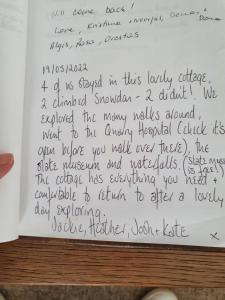 will come back!
Love, Kristina + Nerijal,
Algis, Rasa, Orestas
19/05/2022
4 of us stayed in this lovely cottage,
2 climbed Snowdon - 2 didn't! We
explored the many walks around,
went to the Quarry Hospital (check it's
open before you walk over there), the
slate museum and waterfalls. (Slate museum is free!)
The cottage has everything you need +
comfortable to return to after a lovely
day exploring.
Jackie, Heather, Josh + Kate
x